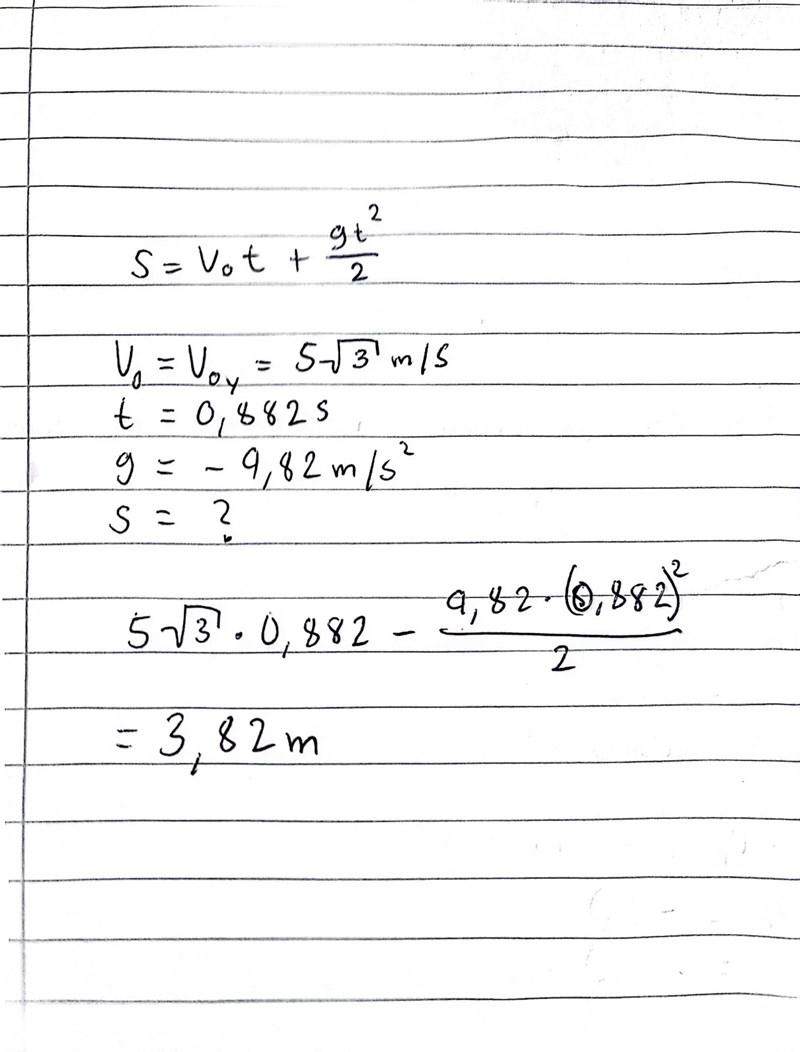 S = V₀t + gt²/2
V₀ = V₀y = 5√3 m/s
t = 0,882s
g = - 9,82 m/s²
s = ?
5√3 · 0,882 - 9,82·(0,882)²/2
= 3,82m